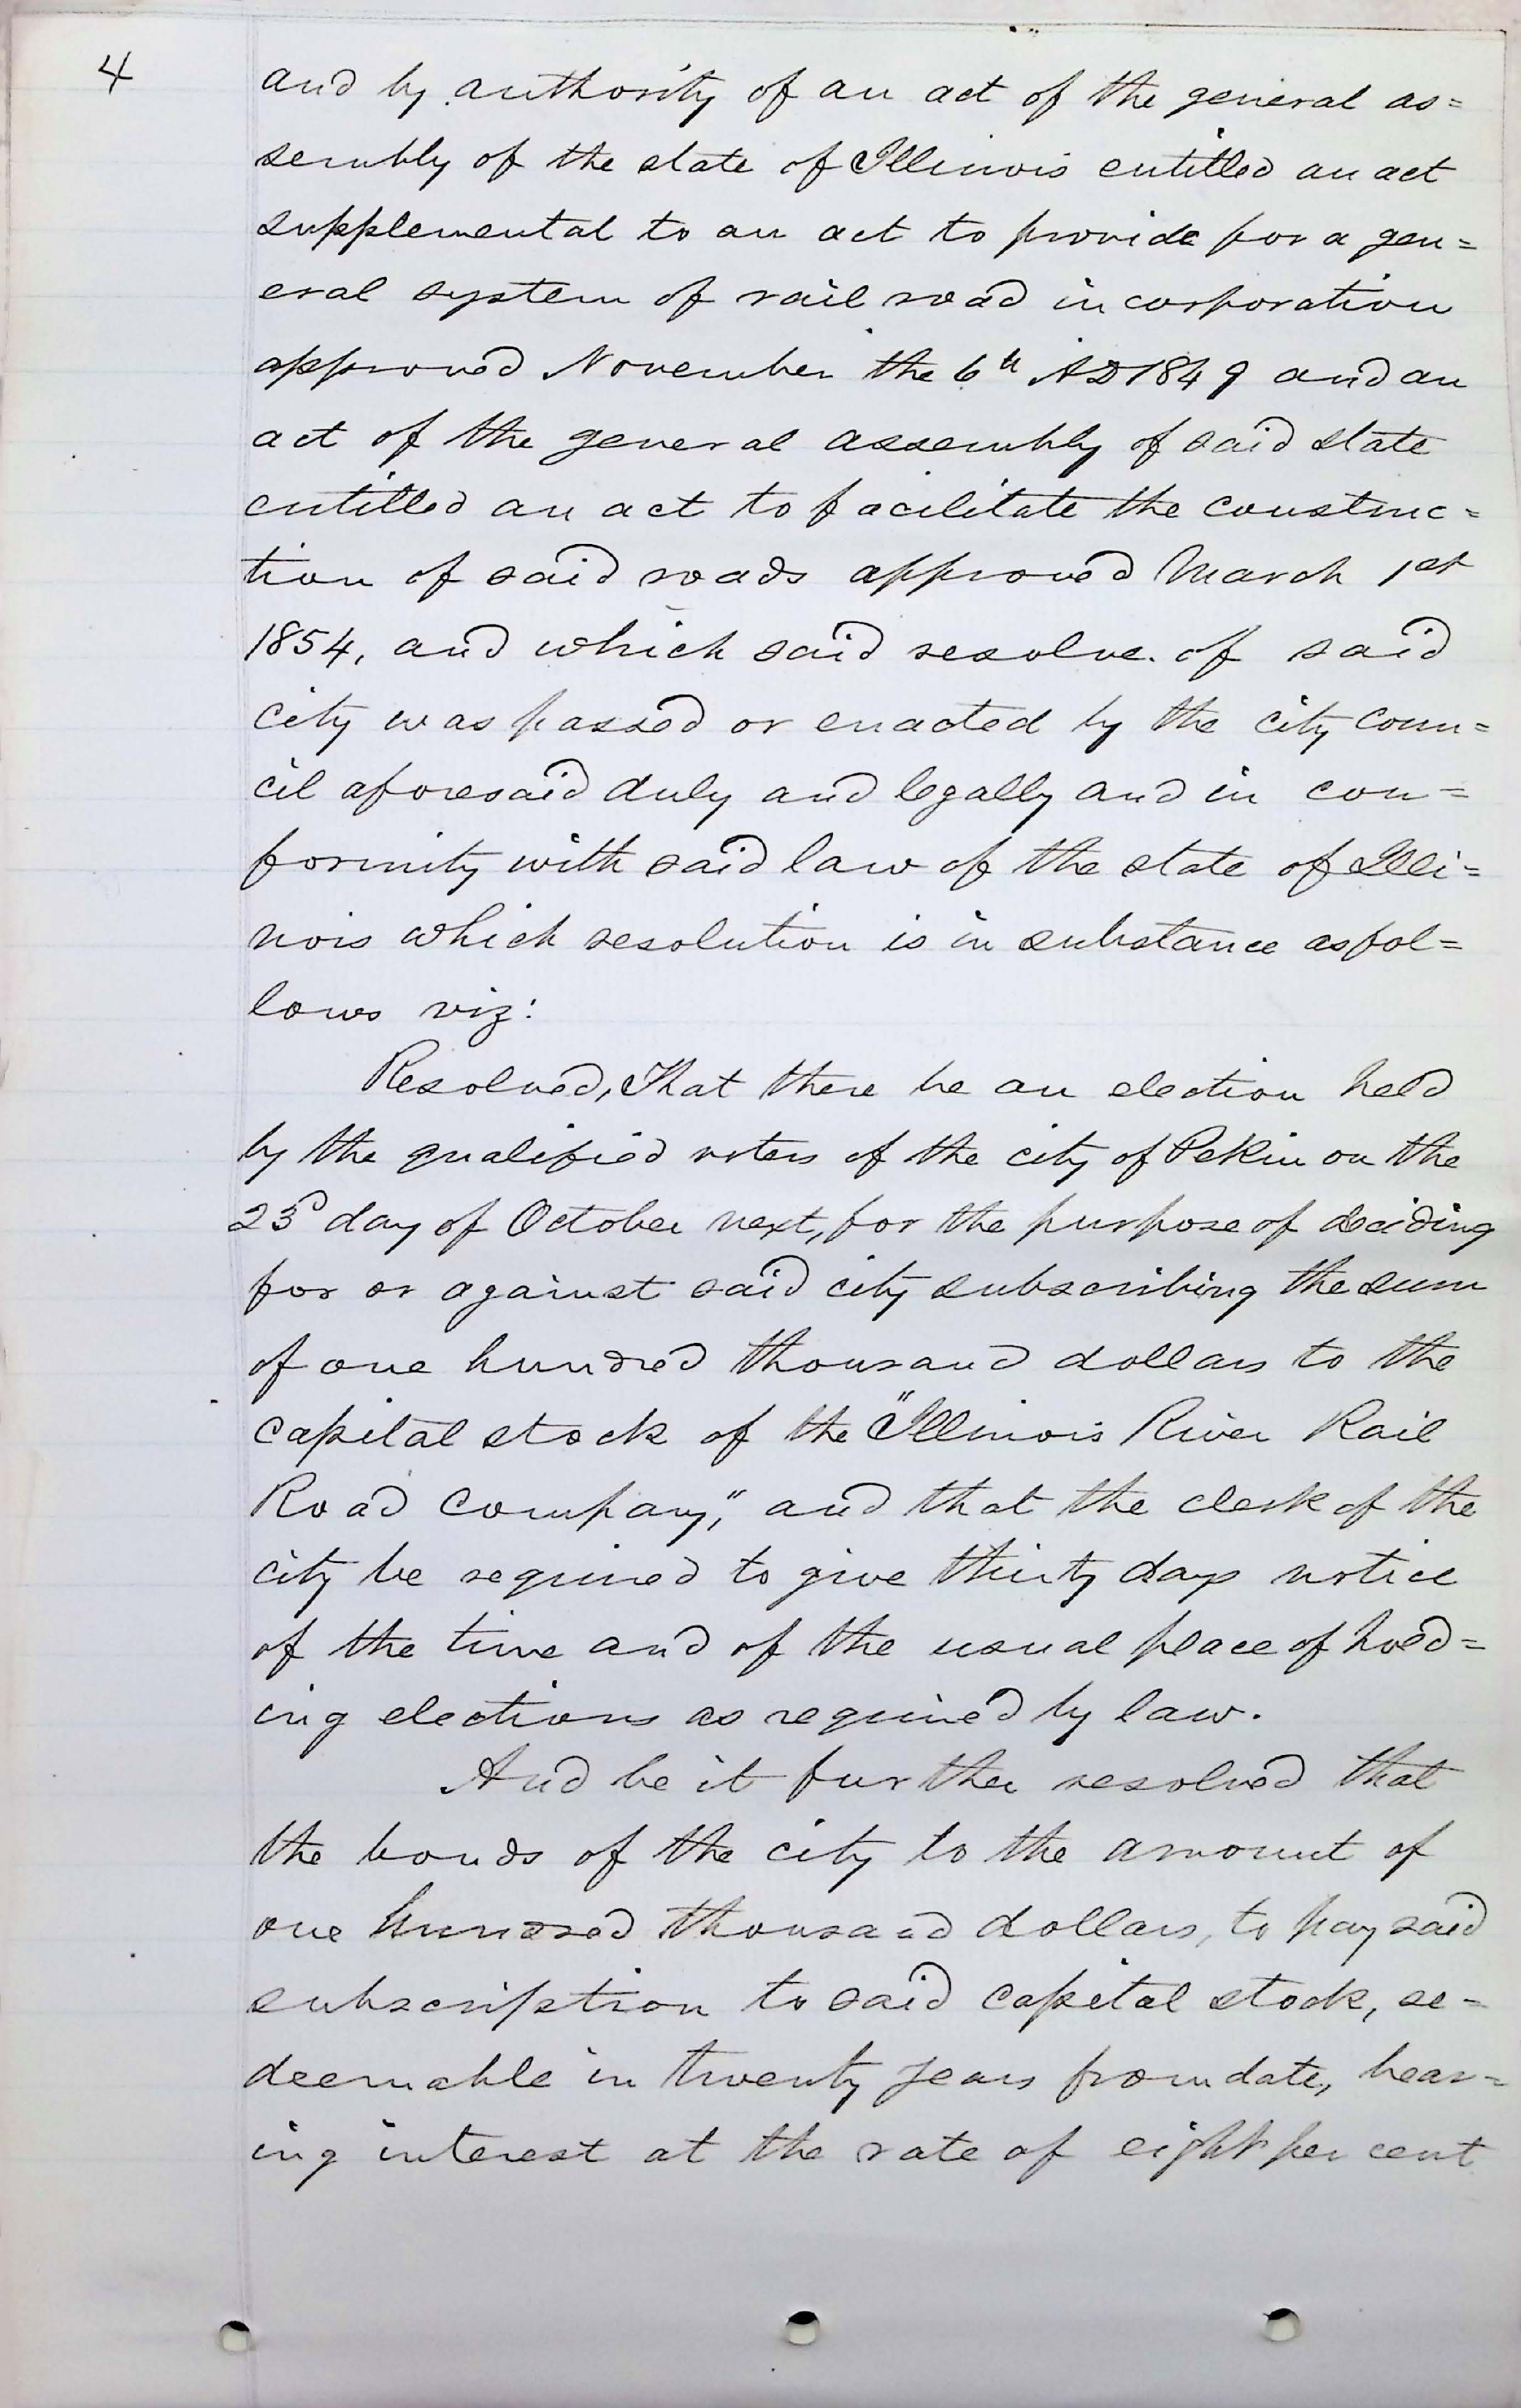 4
and by authority of an act of the general as=
sembly of the state of Illinois entitled an act
supplemental to an act to provide for a gen=
eral system of rail road incorporation
approved November the 6th AD 1849 and an
act of the general assembly of said state
entitled an act to facilitate the construc=
tion of said roads approved March 1st
1854, and which said resolve. of said
city was passed or enacted by the city coun=
cil aforesaid duly and legally and in con=
formity with said law of the state of Illi=
nois which resolution is in substance as fol=
lows viz:
Resolved, That there be an election held
by the qualified voters of the city of Pekin on the
23d day of October next, for the purpose of deciding
for or against said city subscribing the sum
of one hundred thousand dollars to the
capital stock of the "Illinois River Rail
Road Company," and that the clerk of the
city be required to give thirty days notice
of the time and of the usual place of hold=
ing elections as required by law.
And be it further resolved that
the bonds of the city to the amount of
one hundred thousand dollars, to pay said
subscription to said capital stock, re=
deemable in twenty years from date, bear=
ing interest at the rate of eight per cent